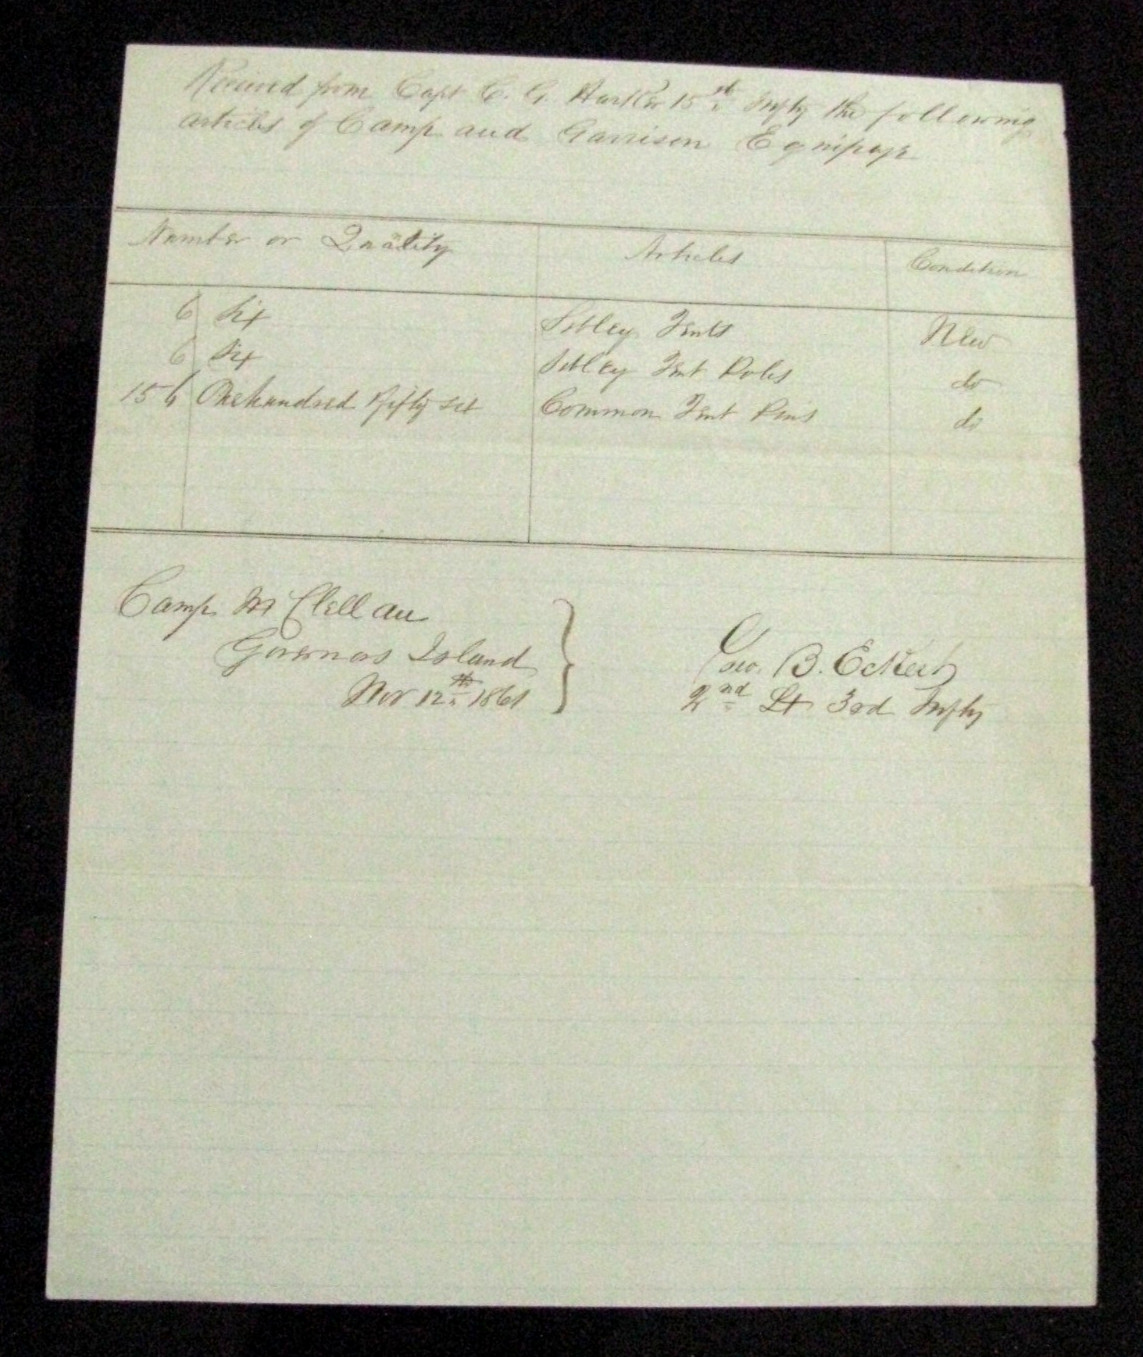 Received from Capt C. G. Harker 15th Infty the following
articles of Camp and Garrison Equipage
Number or Quality Articles Condition
6 Six Sibley Tents New
6 Six Sibley Tent Poles do
156 One hundred Fifty six Common Tent Pins do
Camp McClellan
Governors Island
Nov 12th 1861
Geo. B. Eckert
2nd Lt 3rd Infty